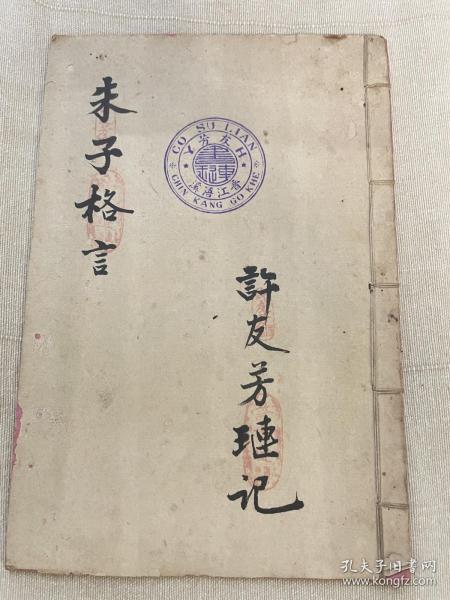 朱子格言
許友芳璉记
CO SU LIAN
CHIN KANG GO KHE
晋江浯溪
孔夫子旧书网
www.kongfz.com